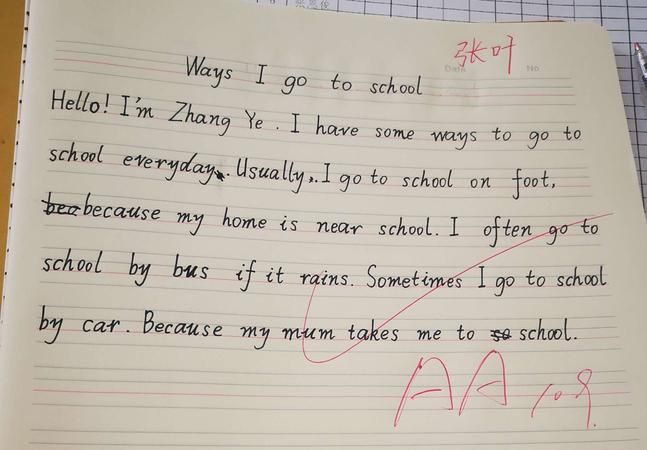 张叶
Date No
Ways I go to school
Hello! I'm Zhang Ye. I have some ways to go to
school everyday. Usually, I go to school on foot,
because my home is near school. I often go to
school by bus if it rains. Sometimes I go to school
by car. Because my mum takes me to school.
AA